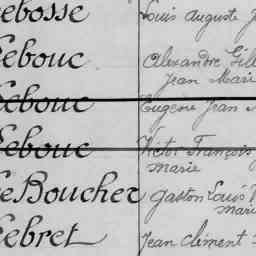 Lebosse Louis Auguste
Lebouc Alexandre
Jean Marie
Lebouc Eugène Jean
Lebouc Victor François
Marie
Le Boucher Gaston Louis
Marie
Lebret Jean Clément